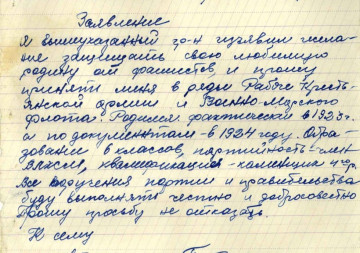 Заявление
Я вышеуказанный гр-н изъявил жела-
ние защищать свою любимую
родину от фашистов, и прошу
принять меня в ряды Рабоче Кресть-
янской армии и Военно-морского
флота. Родился фактически в 1923 г.
а по документам в 1924 году. Обра-
зование 6 классов, партийность - член
ВЛКСМ, квалификация - каменщик 4 гр.
Все поручения партии и правительства
буду выполнять честно и добросовестно
Прошу просьбу не отказать.
К сему